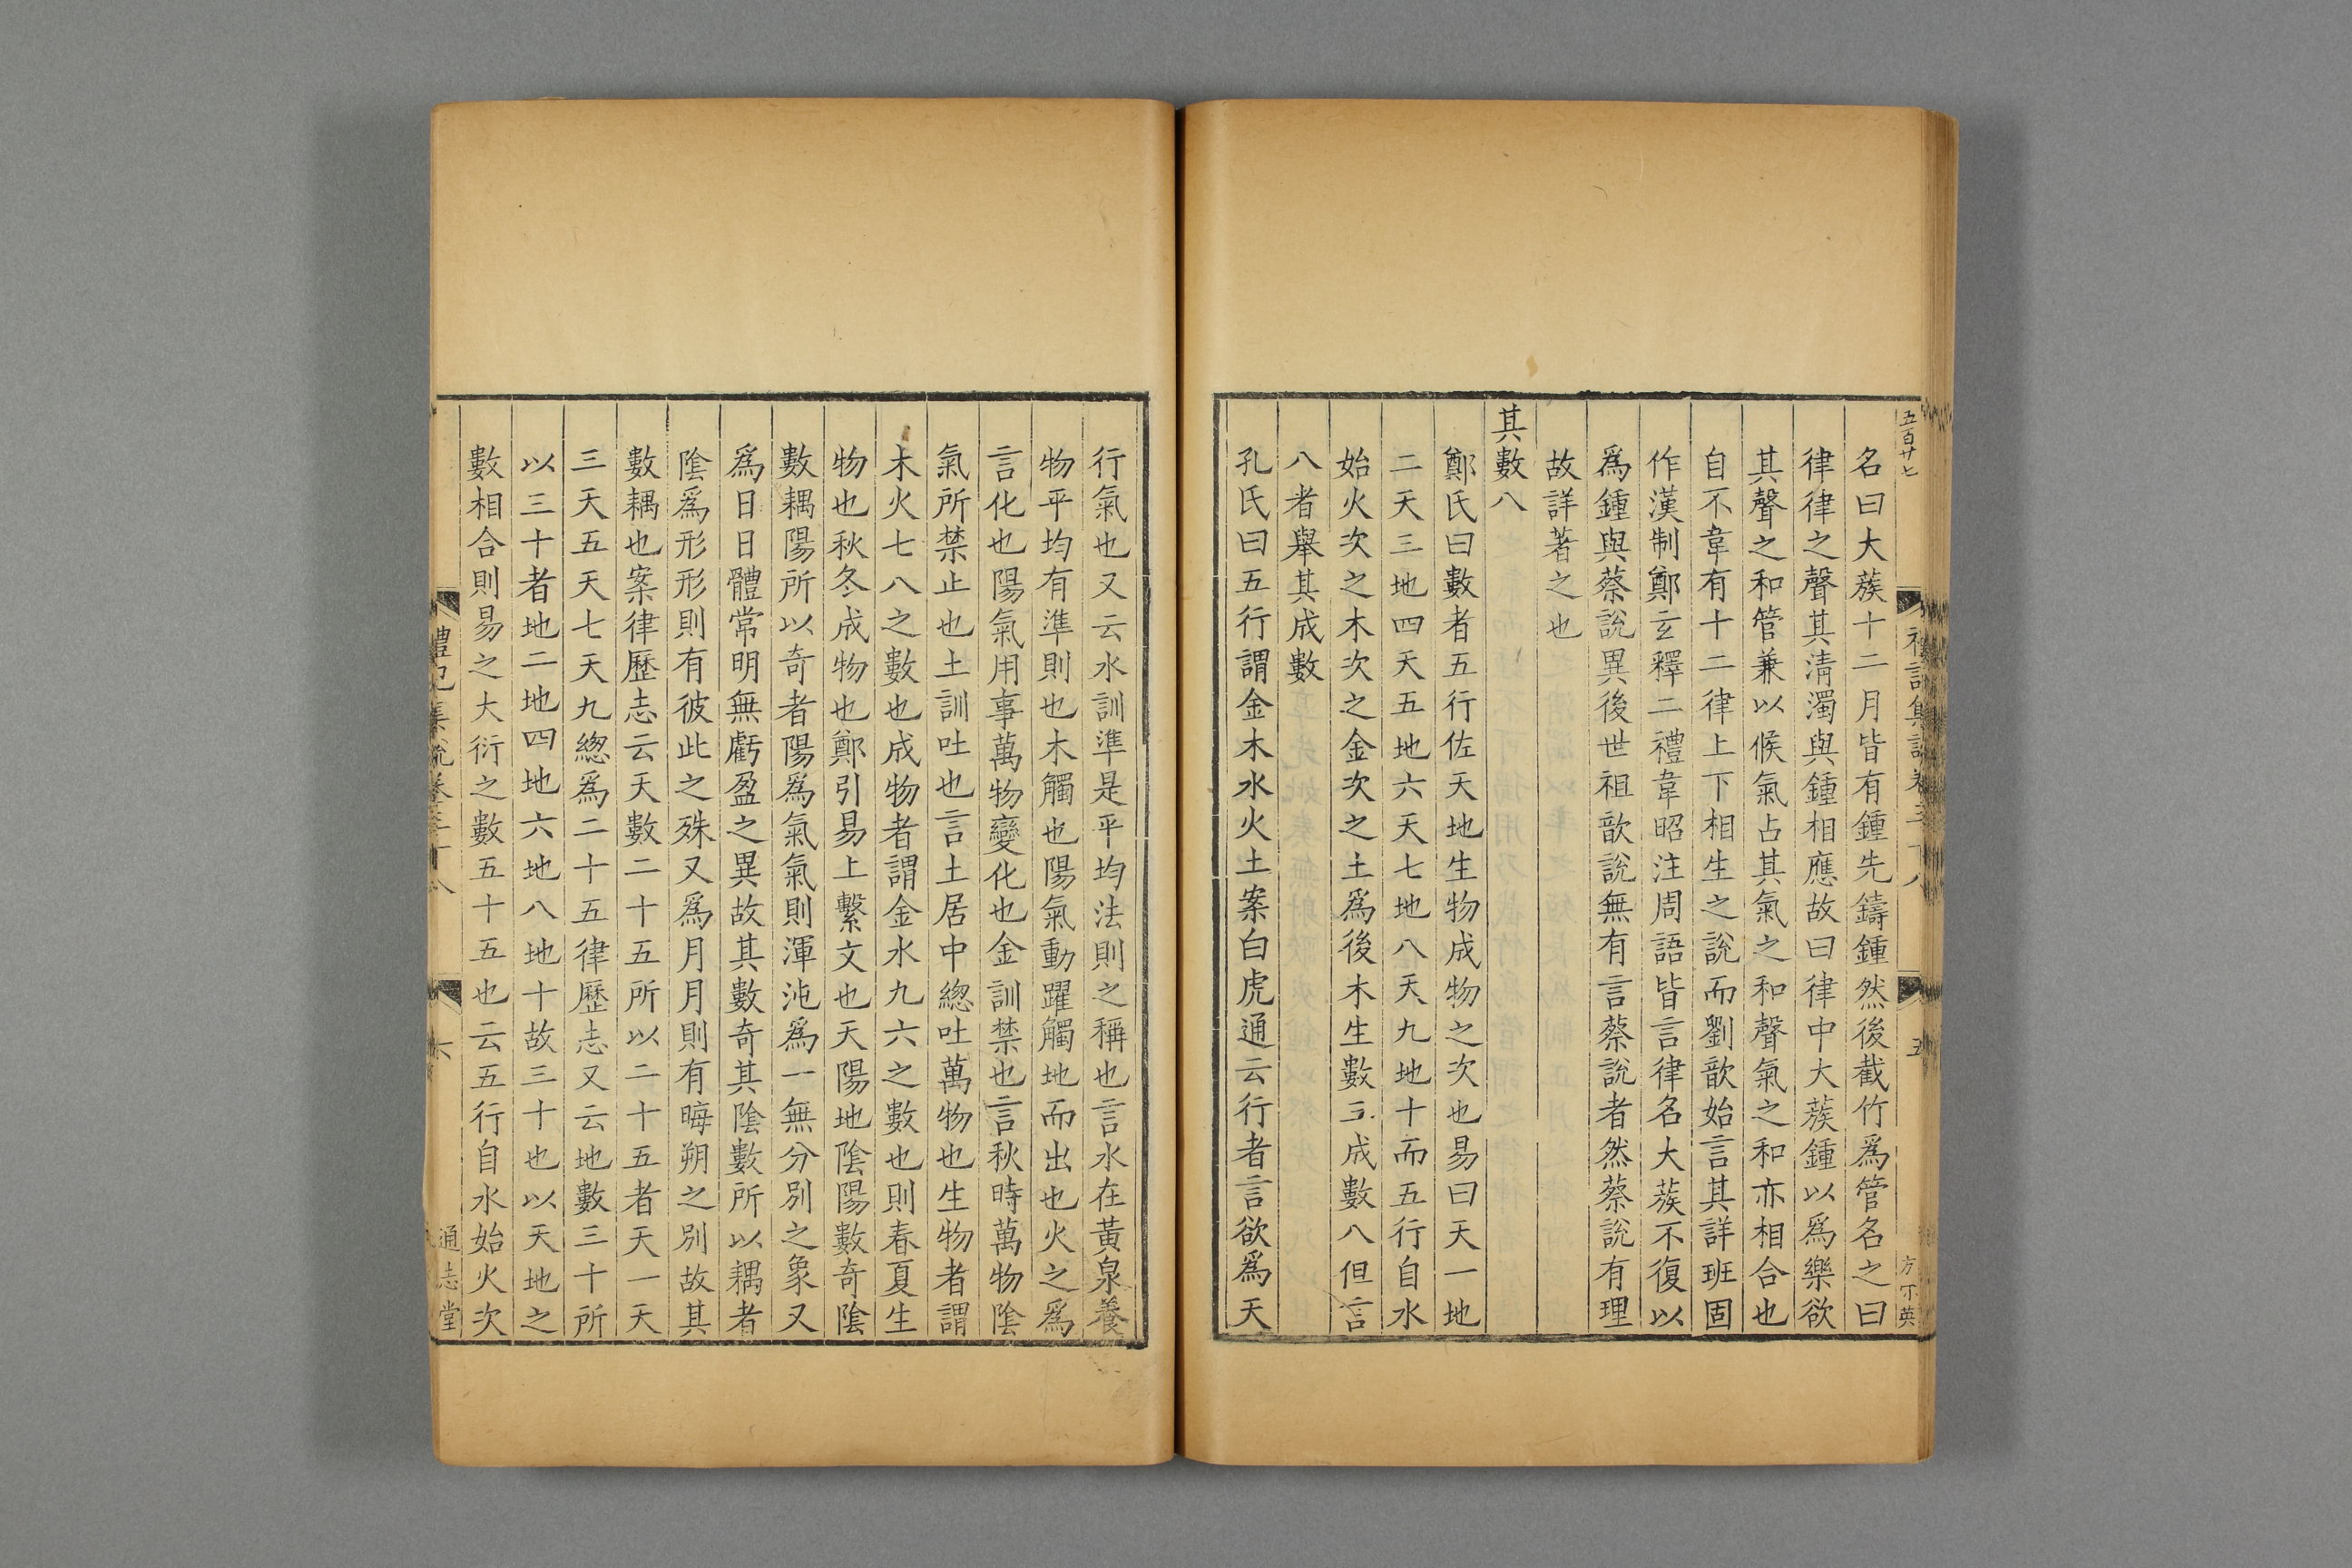 五百廿七
名曰大蔟十二月皆有鍾先鑄鍾然後截竹爲管名之曰
律律之聲其清濁與鍾相應故曰律中大蔟鍾以爲樂欲
其聲之和管兼以候氣占其氣之和聲氣之和亦相合也
自不韋有十二律上下相生之說而劉歆始言其詳班固
作漢制鄭玄釋二禮韋昭注周語皆言律名大蔟不復以
爲鍾與蔡說異後世祖歆說無有言蔡說者然蔡說有理
故詳著之也
其數八
鄭氏曰數者五行佐天地生物成物之次也易曰天一地
二天三地四天五地六天七地八天九地十而五行自水
始火次之木次之金次之土爲後木生數三成數八但言
八者舉其成數
孔氏曰五行謂金木水火土案白虎通云行者言欲爲天
行氣也又云水訓準是平均法則之稱也言水在黃泉養
物平均有準則也木觸也陽氣動躍觸地而出也火之爲
言化也陽氣用事萬物變化也金訓禁也言秋時萬物陰
氣所禁止也土訓吐也言土居中緫吐萬物也生物者謂
木火七八之數也成物者謂金水九六之數也則春夏生
物也秋冬成物也鄭引易上繫文也天陽地陰陽數奇陰
數耦陽所以奇者陽爲氣氣則渾沌爲一無分別之象又
爲日日體常明無虧盈之異故其數奇其陰數所以耦者
陰爲形形則有彼此之殊又爲月月則有晦朔之別故其
數耦也案律歷志云天數二十五所以二十五者天一天
三天五天七天九緫爲二十五律歷志又云地數三十所
以三十者地二地四地六地八地十故三十也以天地之
數相合則易之大衍之數五十五也云五行自水始火次
禮記集說卷三十八
六
通志堂